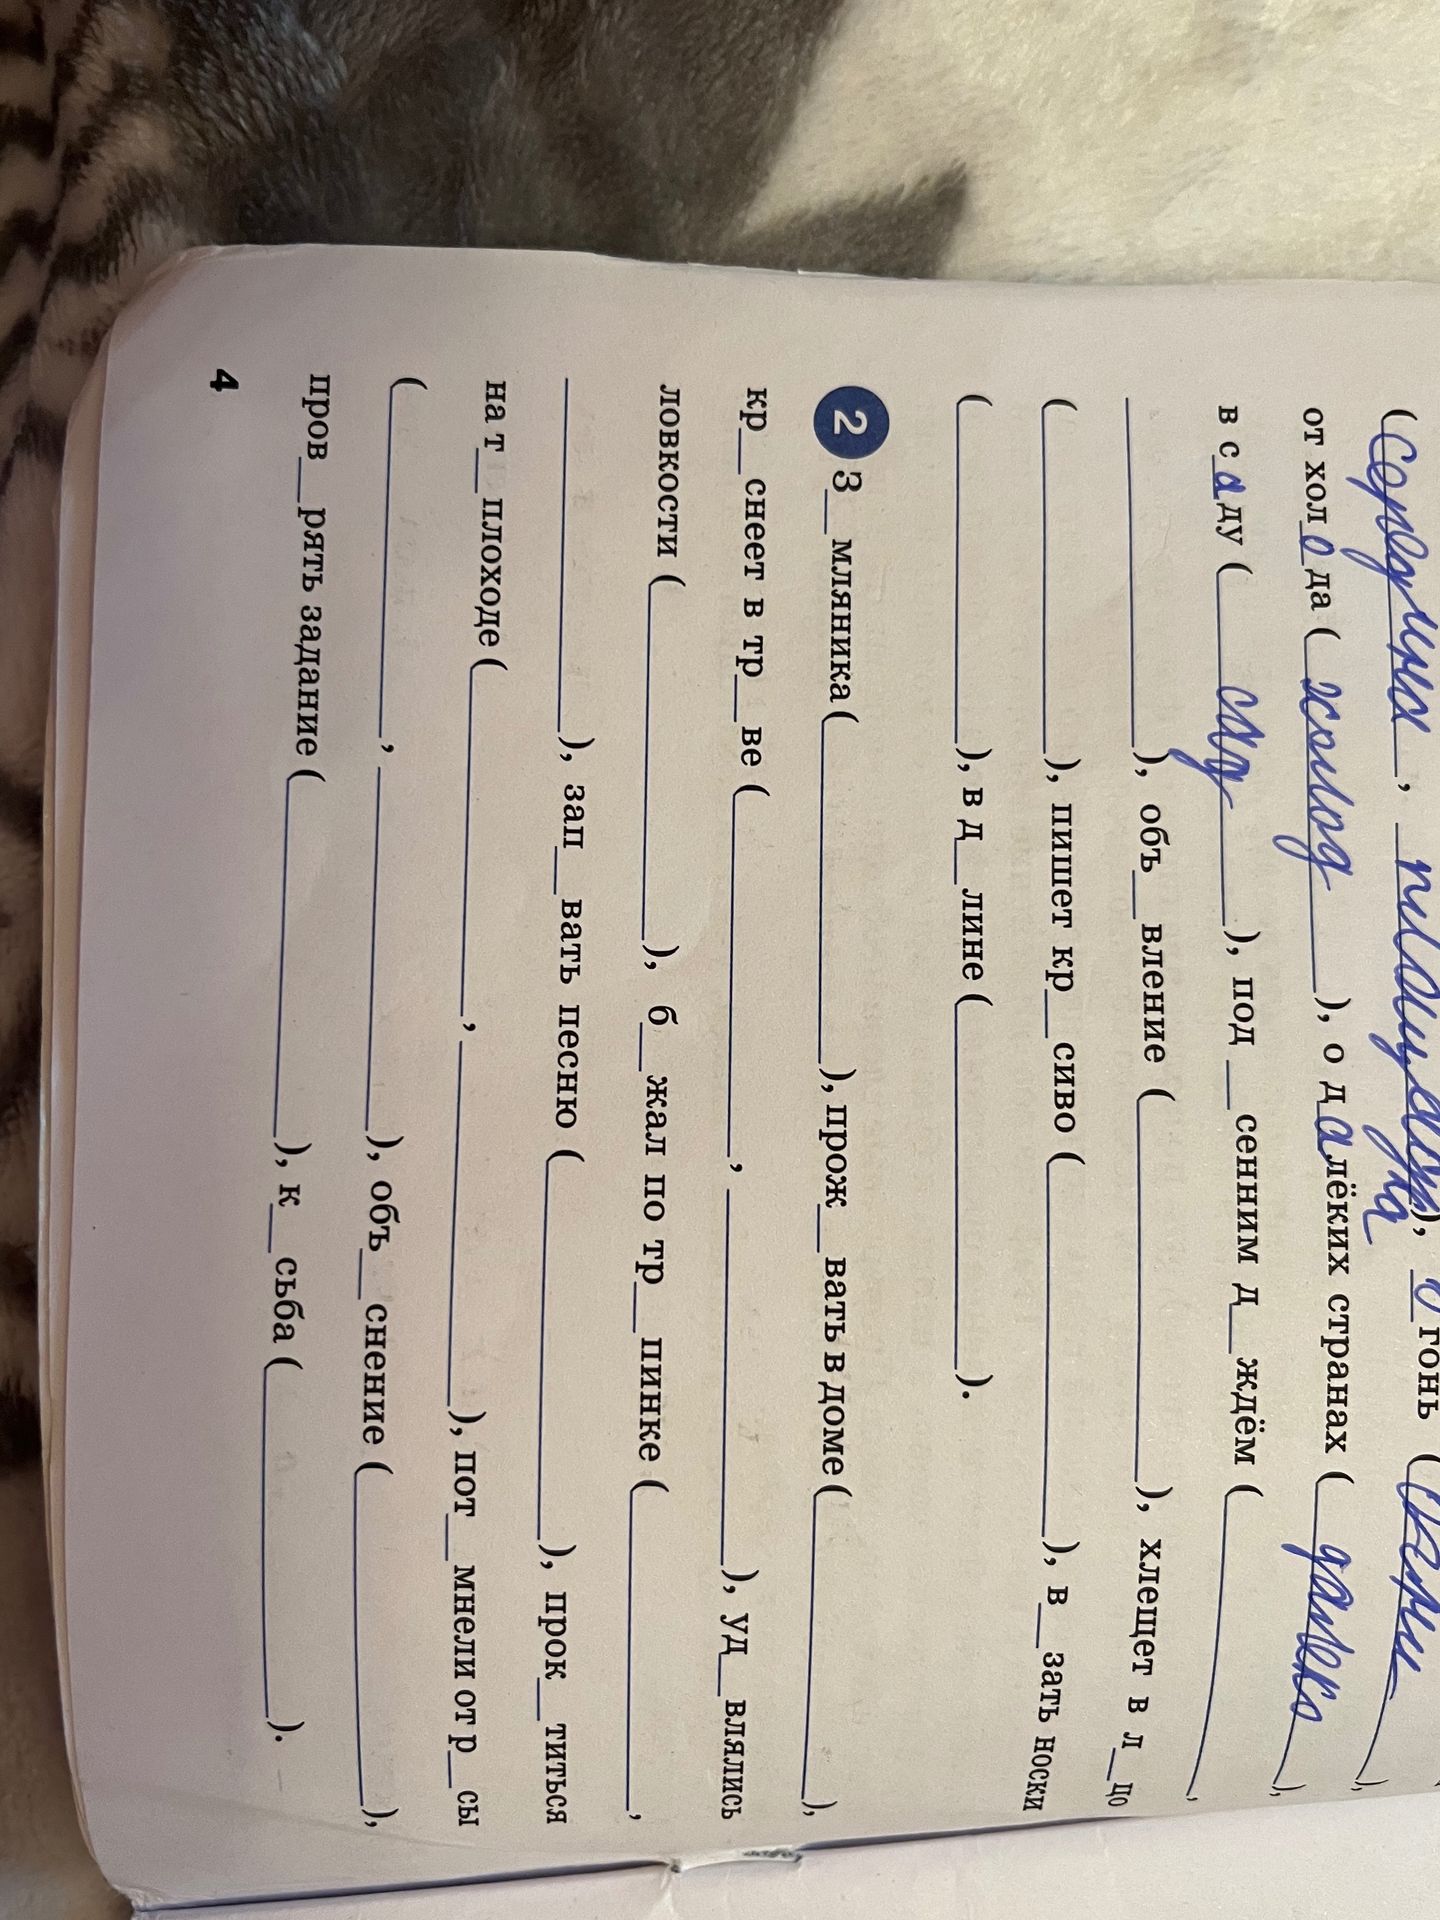 (середина, площадка), огонь (
от холода (холод), о далёких странах (далеко),
в саду (сад), под __ сенним д__ждём (________,
________), объ__вление (________), хлещет в л__цо
(________), пишет кр__сиво (________), в__зать носки
(________), в д__лине (________).
2 З__мляника (________), прож__вать в доме (________),
кр__снеет в тр__ве (________, ________), уд__влялись
ловкости (________), б__жал по тр__пинке (________,
________), зап__вать песню (________), прок__титься
на т__плоходе (________, ________), пот__мнели от р__сы
(________, ________), объ__снение (________),
пров__рять задание (________), к__сьба (________).
4